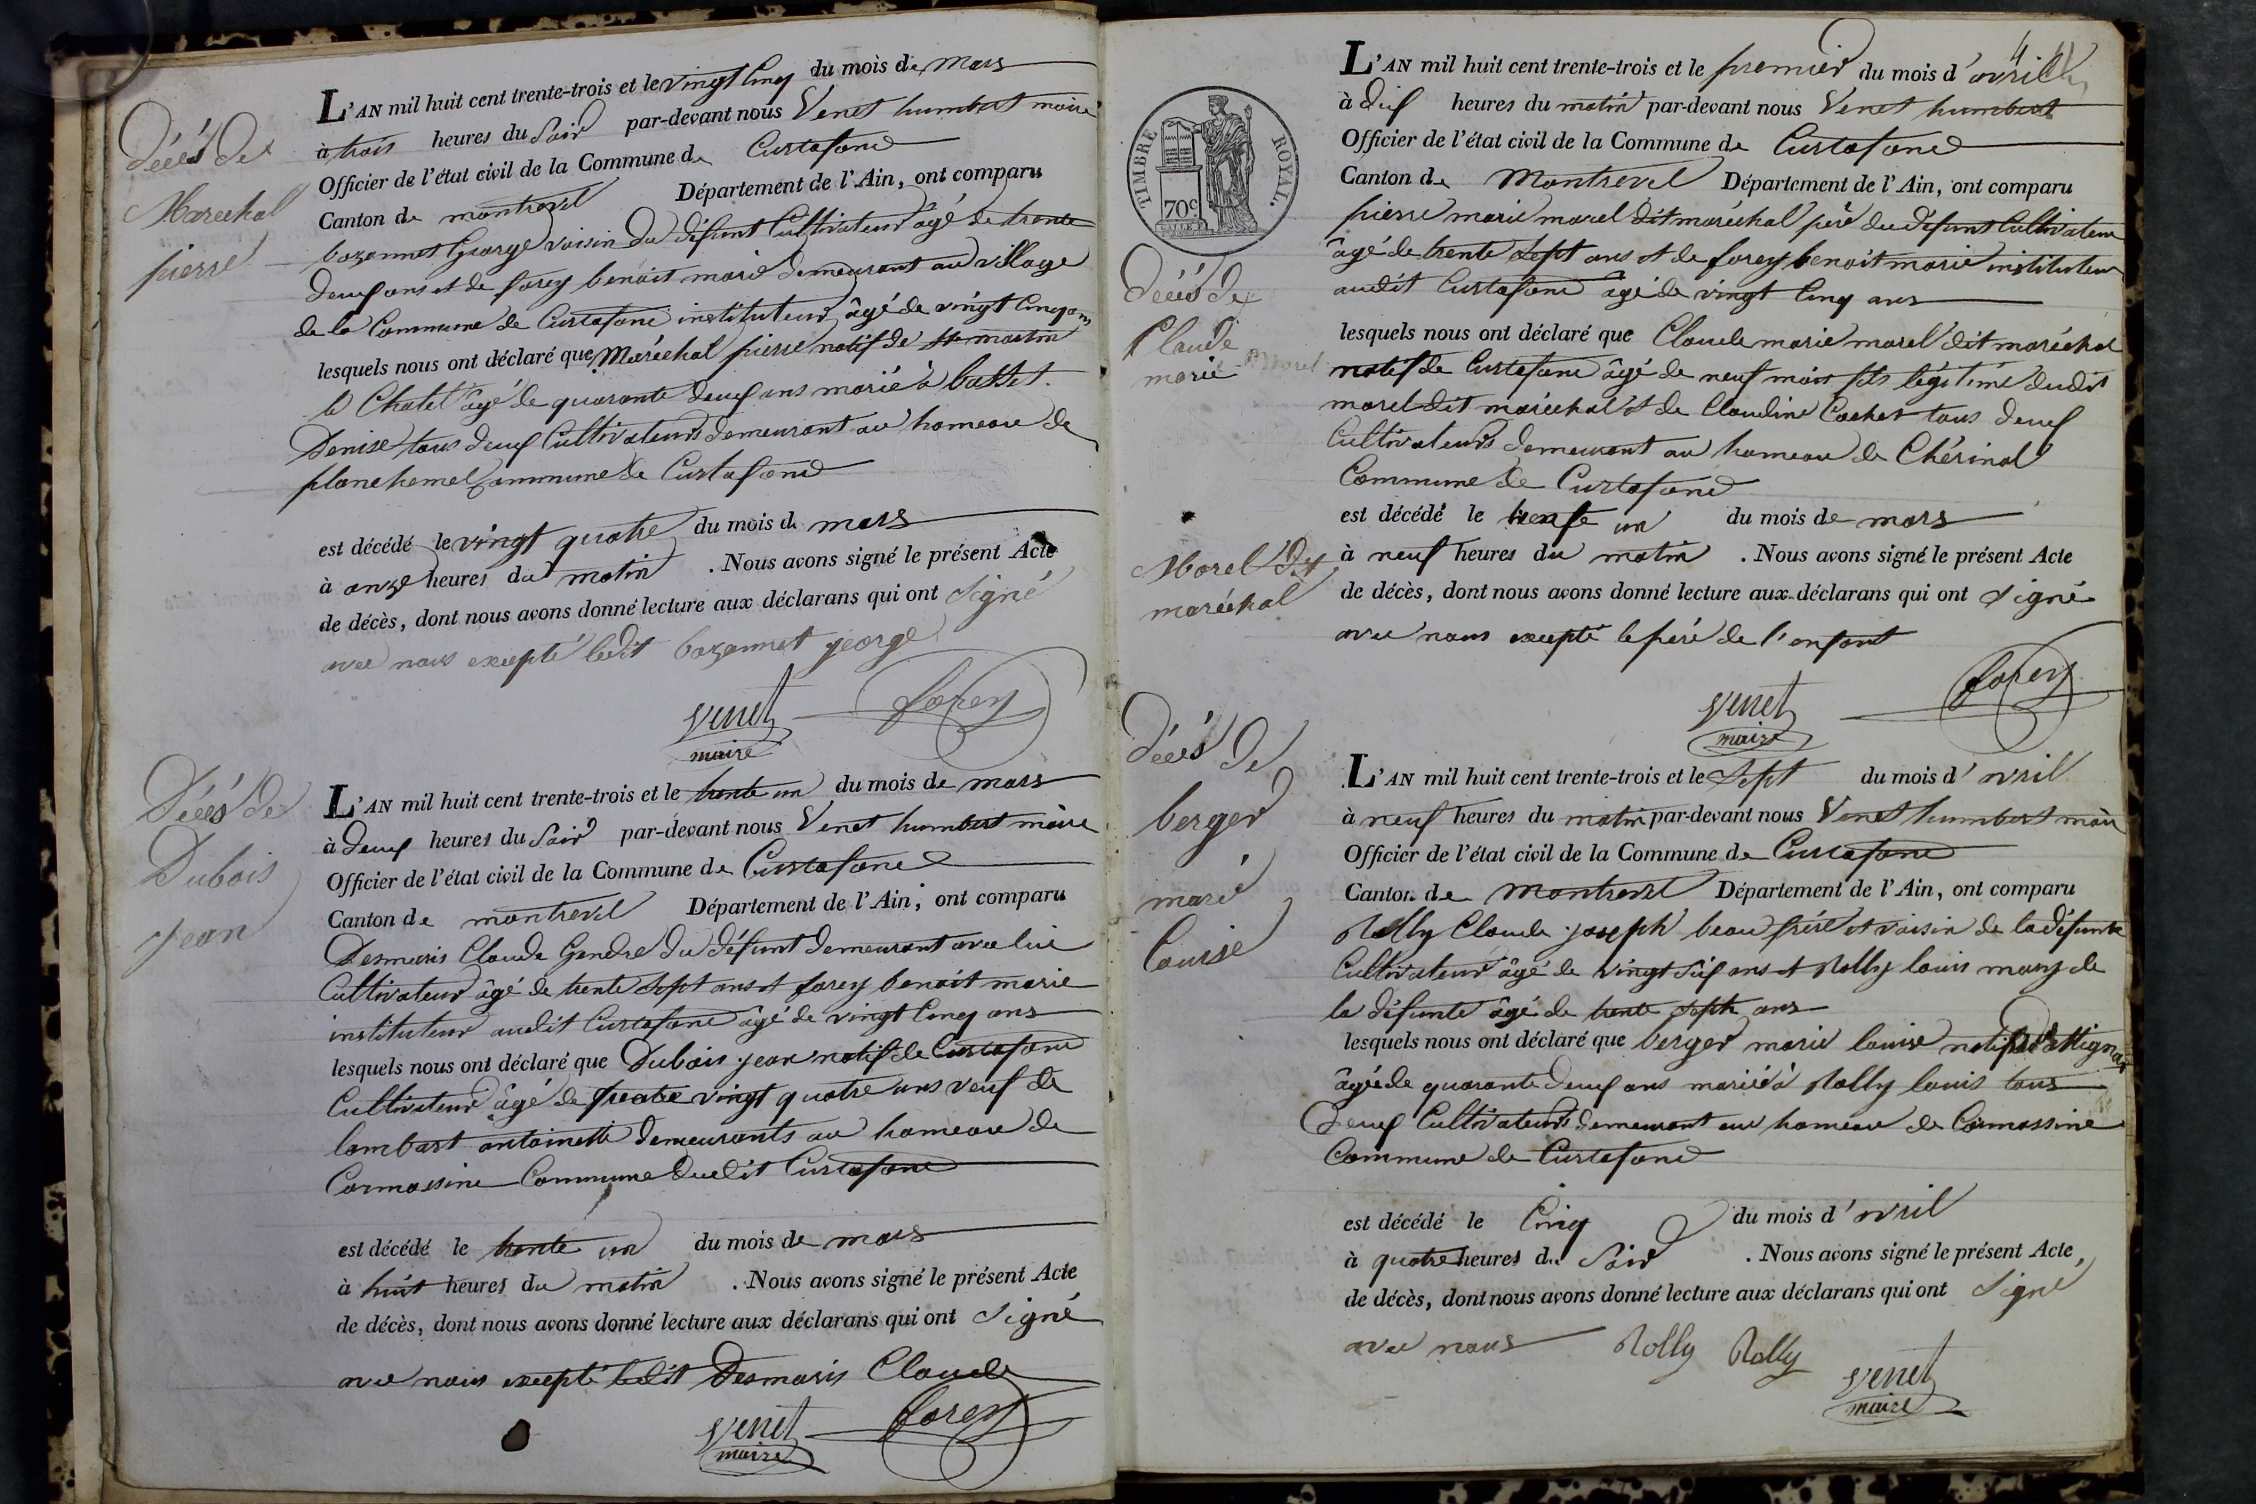 Décés de
Marechal
pierre
L'AN mil huit cent trente-trois et le vingt Cinq du mois de mars
à trois heures du Soir par-devant nous Venet humbert maire
Officier de l'état civil de la Commune de Curtafond
Canton de montrevel Département de l'Ain, ont comparu
bozonnet George voisin du défunt Cultivateur âgé de trente
deux ans et de forey benoit marie demeurant au village
de la Commune de Curtafond instituteur âgé de vingt Cinq ans
lesquels nous ont déclaré que Maréchal pierre natif de st martin
le Chatel âgé de quarante deux ans marié à buttet
Denise tous deux Cultivateurs demeurant au hameau de
planchemel Commune de Curtafond
est décédé le vingt quatre du mois de mars
à onze heures du matin . Nous avons signé le présent Acte
de décès, dont nous avons donné lecture aux déclarans qui ont Signé
avec nous excepté ledit bozonnet george
Venet forey
maire
Décés de
Dubois
jean
L'AN mil huit cent trente-trois et le trente un du mois de mars
à deux heures du Soir par-devant nous Venet humbert maire
Officier de l'état civil de la Commune de Curtafond
Canton de montrevel Département de l'Ain, ont comparu
Desmaris Claude Gendre du défunt demeurant avec lui
Cultivateur âgé de trente Sept ans et forey benoit marie
instituteur audit Curtafond âgé de vingt Cinq ans
lesquels nous ont déclaré que Dubois jean natif de Curtafond
Cultivateur âgé de quatre vingt quatre ans veuf de
lombart antoinette demeurants au hameau de
Cormassine Commune dudit Curtafond
est décédé le trente un du mois de mars
à huit heures du matin . Nous avons signé le présent Acte
de décès, dont nous avons donné lecture aux déclarans qui ont Signé
avec nous excepté ledit Desmaris Claude
Venet forey
maire
4
TIMBRE ROYAL.
70c
Décés de
Claude
marie Morel
Morel dit
maréchal
L'AN mil huit cent trente-trois et le premier du mois d'avril
à dix heures du matin par-devant nous Venet humbert
Officier de l'état civil de la Commune de Curtafond
Canton de Montrevel Département de l'Ain, ont comparu
pierre marie morel dit maréchal père du défunt Cultivateur
âgé de trente Sept ans et de forey benoit marie instituteur
audit Curtafond âgé de vingt Cinq ans
lesquels nous ont déclaré que Claude marie morel dit maréchal
natif de Curtafond âgé de neuf mois fils légitime dudit
morel dit maréchal et de Claudine Cochet tous deux
Cultivateurs demeurant au hameau de Chérinal
Commune de Curtafond
est décédé le trente un du mois de mars
à neuf heures du matin . Nous avons signé le présent Acte
de décès, dont nous avons donné lecture aux déclarans qui ont Signé
avec nous excepté le père de l'enfant
Venet forey
maire
Décés de
berger
marie
Louise
L'AN mil huit cent trente-trois et le Sept du mois d'avril
à neuf heures du matin par-devant nous Venet humbert maire
Officier de l'état civil de la Commune de Curtafond
Canton de Montrevel Département de l'Ain, ont comparu
Rolly Claude joseph beau frère et voisin de la défunte
Cultivateur âgé de vingt Six ans et Rolly louis mary de
la défunte âgé de trente Sept ans
lesquels nous ont déclaré que berger marie louise natif d'attignat
âgée de quarante deux ans mariée à Rolly louis tous
deux Cultivateurs demeurant au hameau de Cormassine
Commune de Curtafond
est décédé le Cinq du mois d'avril
à quatre heures du Soir . Nous avons signé le présent Acte
de décès, dont nous avons donné lecture aux déclarans qui ont Signé
avec nous Rolly Rolly
Venet
maire